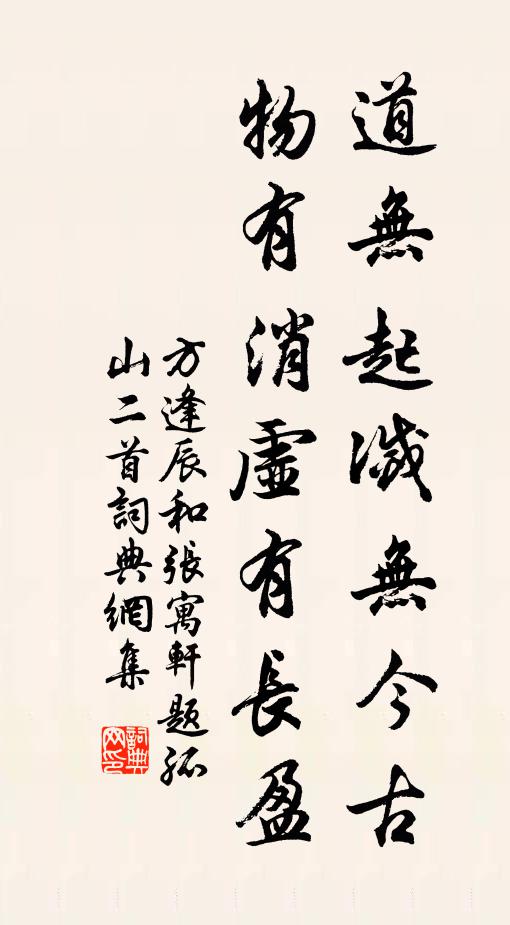 道無起滅無今古
物有消虛有長盈
方逢辰和張寓軒題孤
山二首詞典網集
詞典
网印